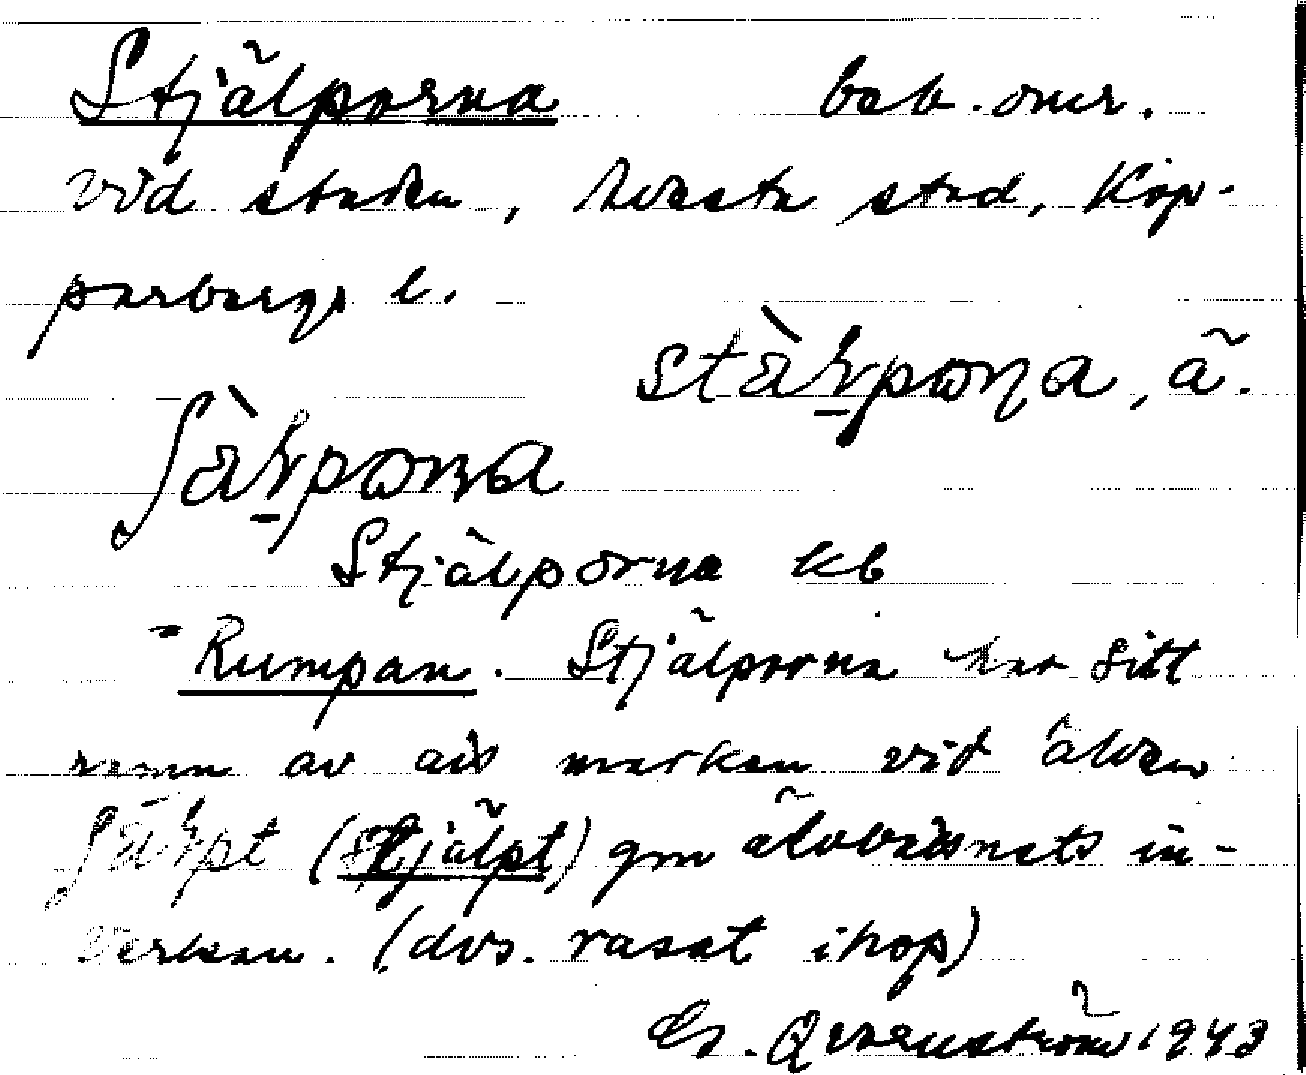 Stjälporna beb. omr.
vid staden, Avesta stad, Kop-
parbergs l.
stàɽpωɳa, ã.
ʃàɽpωɳa
Stjälporna kb
= Rumpan. Stjälporna har sitt
namn av att marken vid älven
ʃäɽpt (stjälpt) gm älvvattnets in-
verkan. (dvs. rasat ihop)
Qvarnström 1943